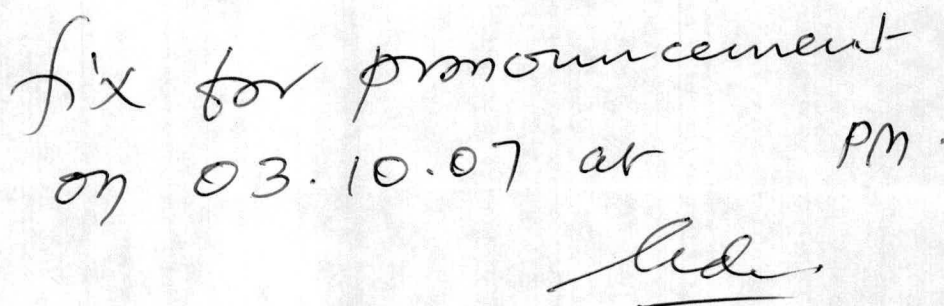 fix for pronouncement
on 03.10.07 at PM.